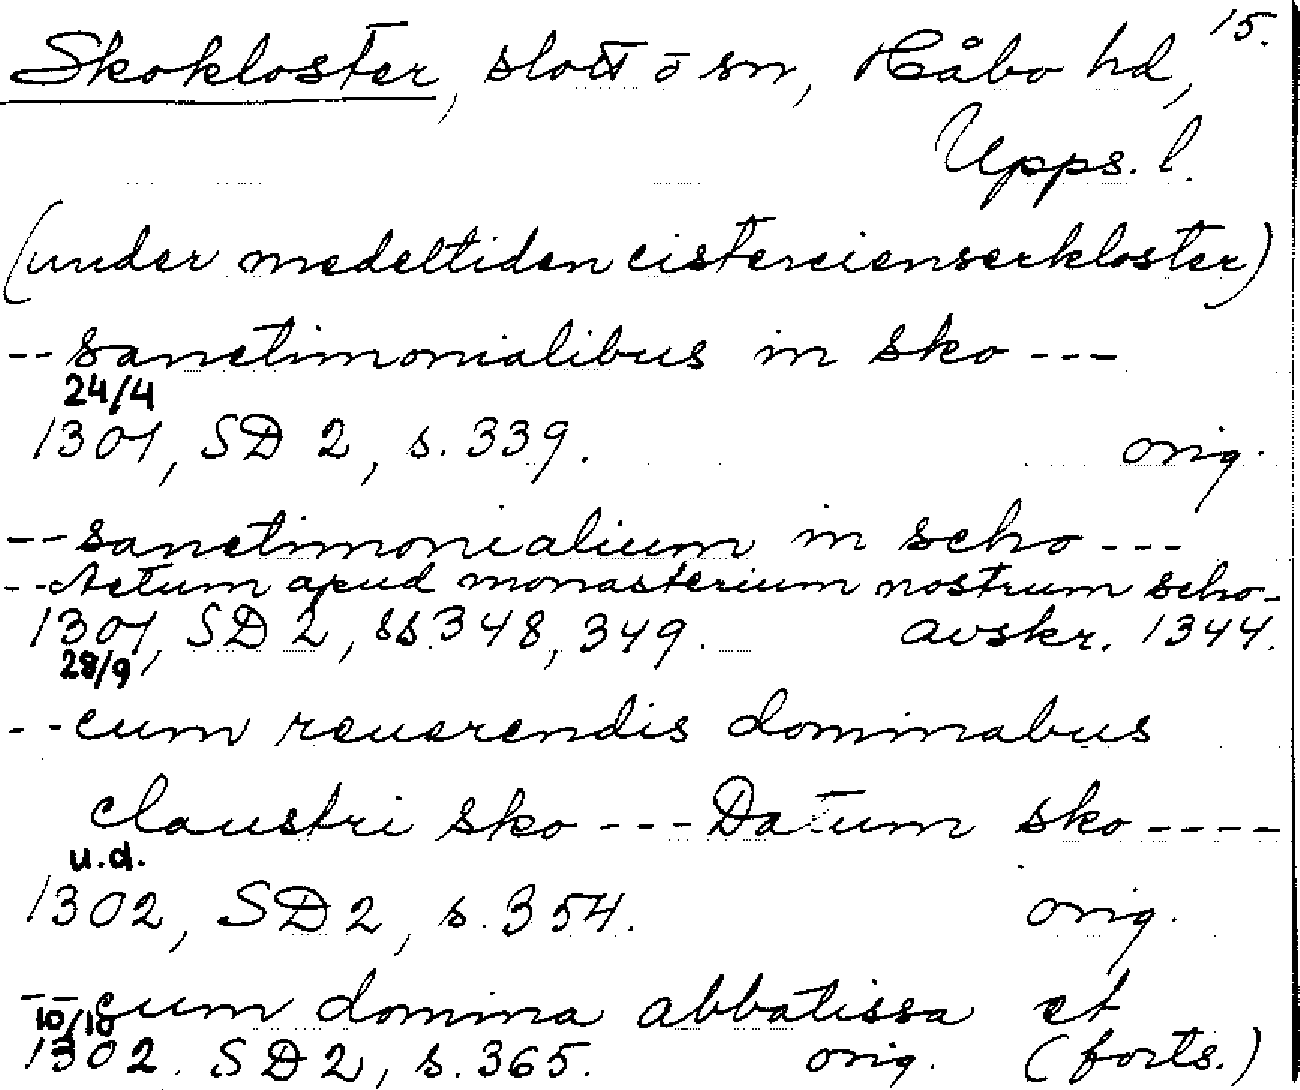 15.
Skokloster, slott o sn, Håbo hd,
Upps. l.
(under medeltiden cistercienserkloster)
-- sanctimonialibus in sko ---
24/4
1301, SD 2, s. 339. orig.
-- sanctimonialium in scho ---
-- Actum apud monasterium nostrum scho-
1301, SD 2, ss. 348, 349. avskr. 1344.
28/9
-- cum reuerendis dominabus
claustri sko --- Datum sko ----
u.d.
1302, SD 2, s. 354. orig.
-- cum domina abbatissa et
10/10
1302. SD 2, s. 365. orig. (forts.)